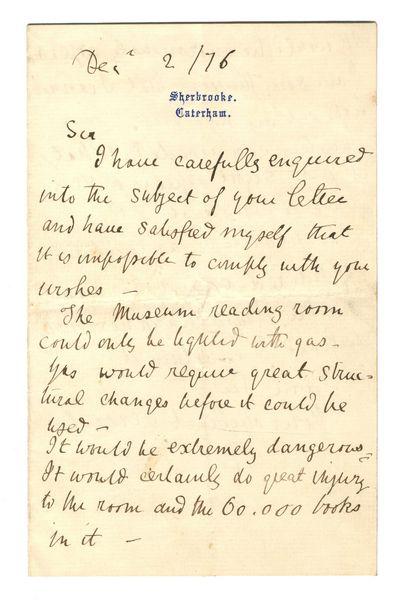 Decr 2/76
Sherbrooke.
Caterham.
Sir
I have carefully enquired
into the subject of your letter
and have satisfied myself that
it is impossible to comply with your
wishes —
The Museum reading room
could only be lighted with gas -
Gas would require great struc-
tural changes before it could be
used -
It would be extremely dangerous -
It would certainly do great injury
to the room and the 60.000 books
in it —